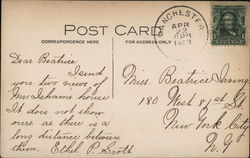 POST CARD
CORRESPONDENCE HERE
FOR ADDRESS ONLY
MANCHESTER
APR
Dear Beatrice
I send
you two views of
house
It does not show
ours as there is a
long distance between
them. Ethel P. Scott
Miss. Beatrice
180 West 81st St
New York City
N.Y.